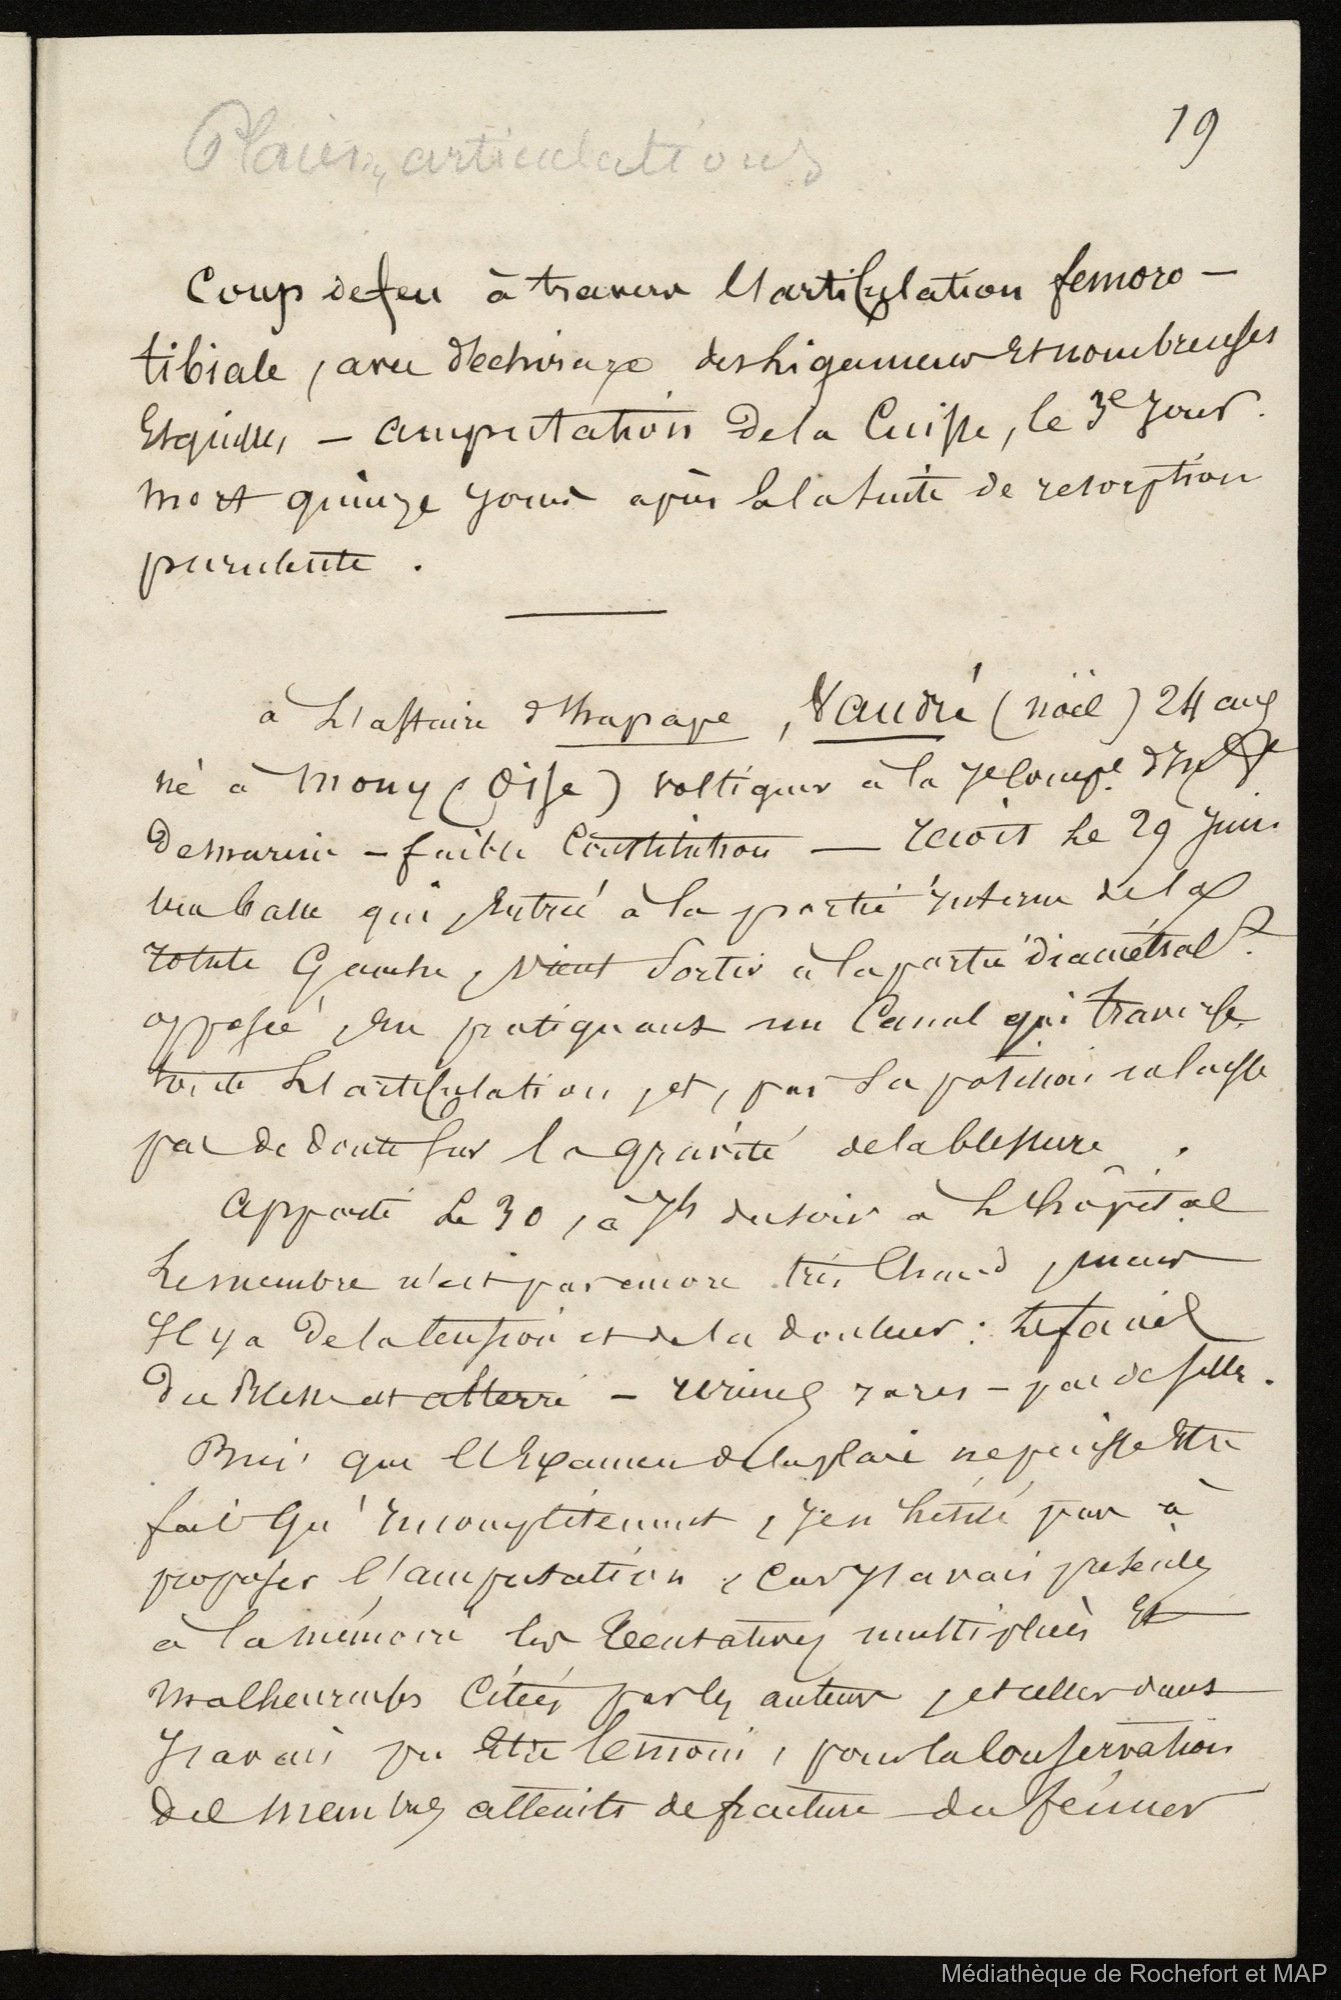 19
Plaies, articulations
Coup de feu à travers l'articulation femoro-
tibiale, avec déchirage des ligameux et nombreuses
esquilles, – amputation de la Cuisse, le 3e jour.
Mort quinze jours après à la suite de resorption
purulente.
à l'affaire d'hapape, Vaudré (nöel) 24 ans
né à Mony (Oise) voltigeur à la 7e Comp.e d'Inf
de marine – faible Constitution – reçoit le 29 juin
une balle qui, entrée à la partie interne de la
rotule Gauche, vient sortir à la partie diamétral.t
opposée, en pratiquant un Canal qui traverse
toute l'articulation, et, par sa position ne laisse
pas de doute sur la gravité de la blessure.
Apporté le 30, à 7h du soir à l'hôpital
Le membre n'est pas encore très Chaud, mais
Il y a de la tension et de la douleur : le faciès
du Blessé est atterré – urines rares – pas de selle.
Bien que l'Examen de la plaie ne puisse être
fait qu'incomplètement, je n'hésité pas à
proposer l'amputation, car j'avais présentes
à la mémoire les tentatives multipliées et
malheureuses Citées par les auteurs, et celles dont
j'avais pu être témoin, pour la Conservation
des membres atteints de fracture du fémur
Médiathèque de Rochefort et MAP